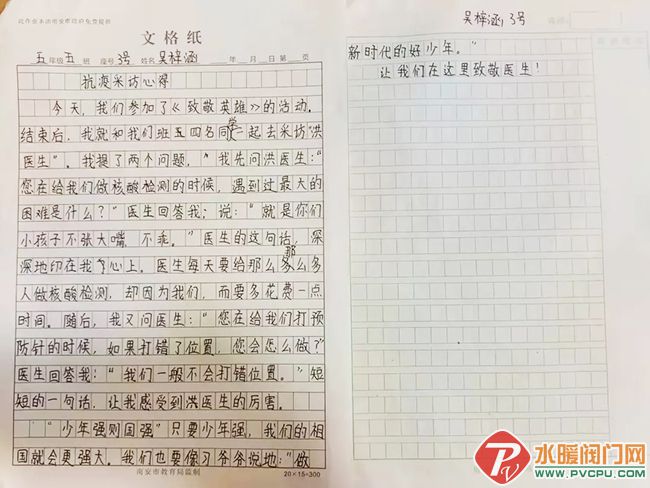 文格纸
五年级五班 座号3号 姓名吴梓涵 年 月 日 第 页
抗疫采访心得
今天，我们参加了《致敬英雄》的活动。
结束后，我就和我们班五四名同学一起去采访"洪
医生"。我提了两个问题，"我先问洪医生："
您在给我们做核酸检测的时候，遇到过最大的
困难是什么？"医生回答我；说："就是你们
小孩子不张大嘴，不乖。"医生的这句话，深
深地印在我心上。医生每天要给那么多么多
人做核酸检测，却因为我们，而要多花费一点
时间。随后，我又问医生："您在给我们打预
防针的时候，如果打错了位置，您会怎么做？"
医生回答我："我们一般不会打错位置。"短
短的一句话，让我感受到洪医生的厉害。
"少年强则国强"只要少年强，我们的祖
国就会更强大。我们也要像习爷爷说地："做
南安市教育局监制
20×15=300
吴梓涵 3号
新时代的好少年。"
让我们在这里致敬医生！
水暖阀门网
WWW.PVCPU.COM